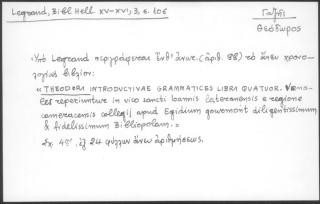 Legrand, Bibl. Hell. XV-XVI, 3, σ. 106
Γαζῆς
Θεόδωρος
Ὑπὸ Legrand περιγράφεται ἐνθ' ἀνωτ. (ἀριθ. 88) τὸ ἄνευ χρονο-
λογίας βιβλίον:
«THEODORI INTRODUCTIVAE GRAMMATICES LIBRI QUATUOR. Vena-
les reperiuntur in vico sancti Ioannis lateranensis e regione
cameracensis collegij apud Egidium gourmont diligentissimum
& fidelissimum Bibliopolam.»
Σχ. 4ον, ἐξ 24 φύλλων ἄνευ ἀριθμήσεως.